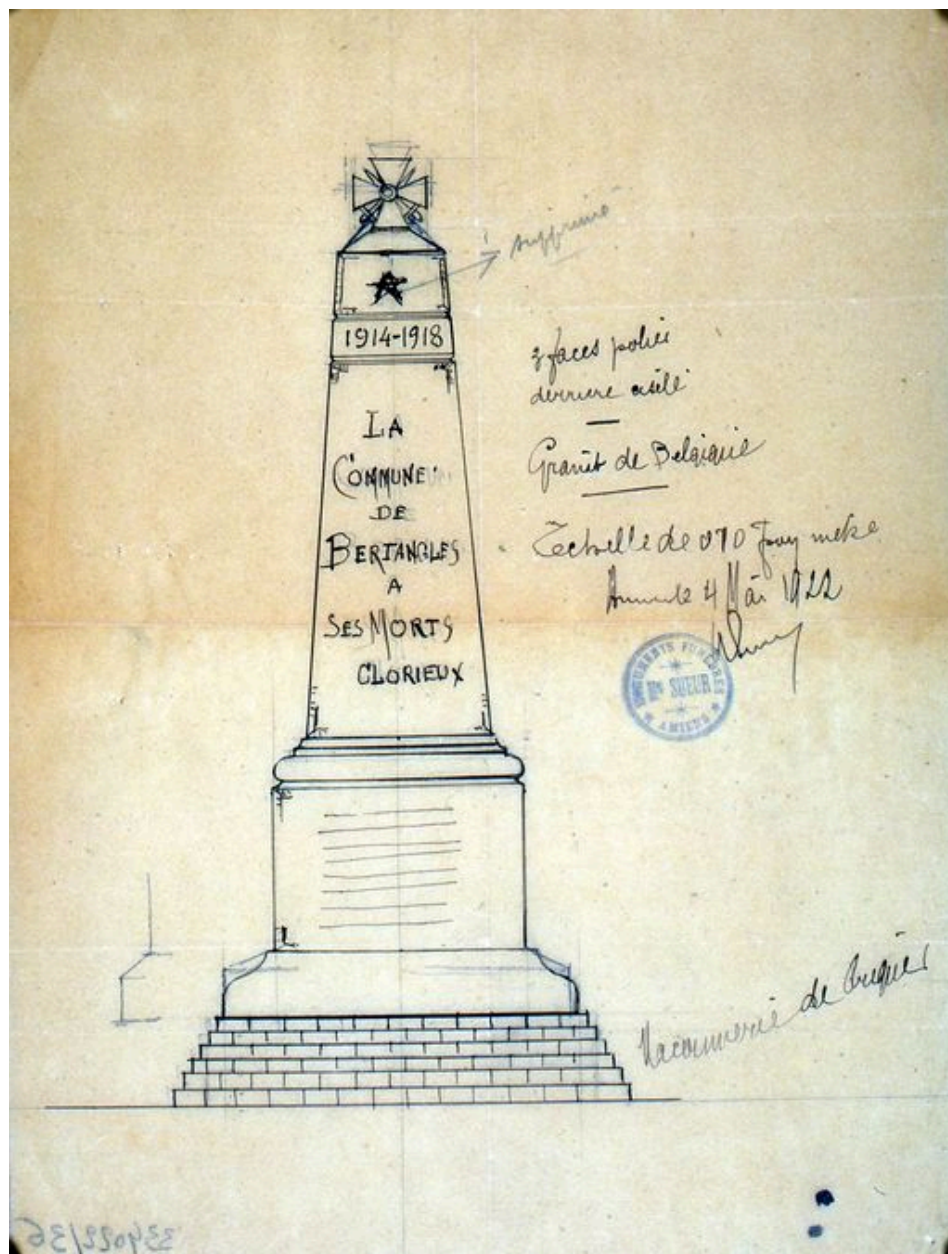 supprimé
1914-1918
LA
COMMUNE
DE
BERTANGLES
A
SES MORTS
GLORIEUX
3 faces polies
derriere ciselé
Granit de Belgique
Echelle de 0,10 pour mètre
4 Mai 1922
MONUMENTS FUNÈBRES
SUEUR
AMIENS
Maçonnerie de briques
334022/36